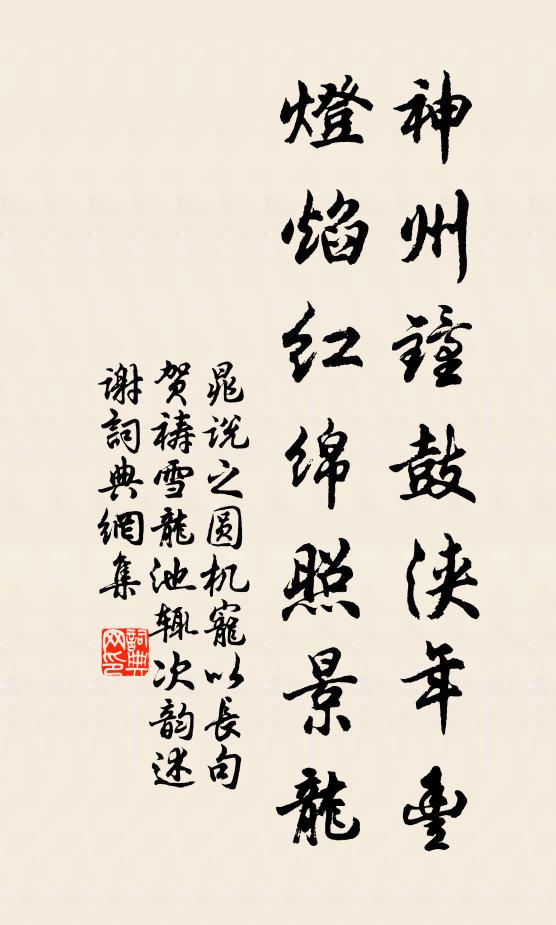 神州鐘鼓浹年豐
燈焰紅绵照景龍
晁说之圆机寵以長句
贺禱雪龍池辄次韵述
谢詞典網集
詞典网印